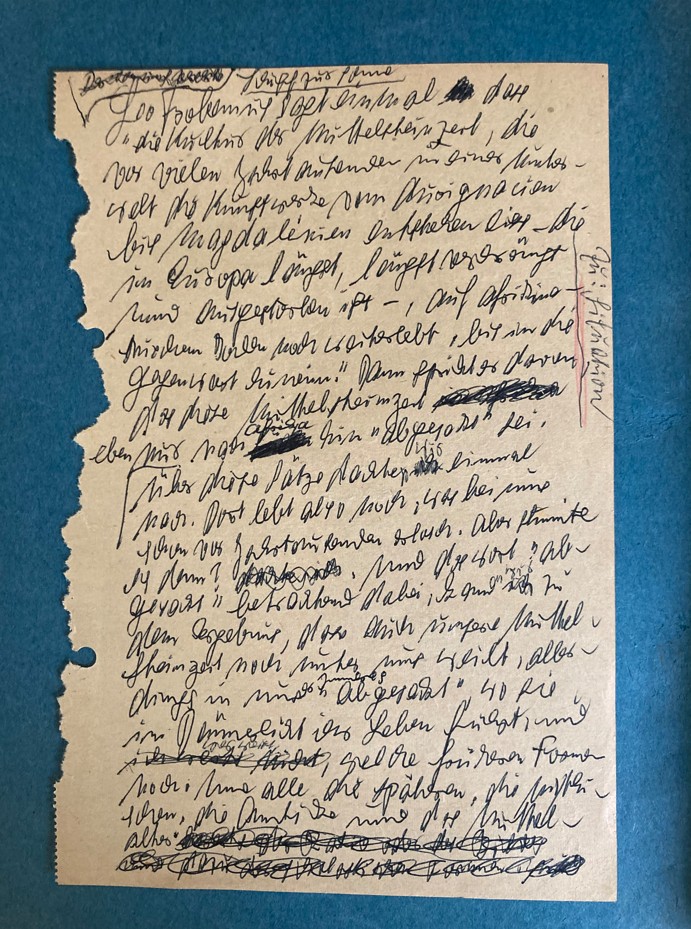 Leo Frobenius sagt einmal dass
"die Kultur der Mittelsteinzeit, die
vor vielen Jahrtausenden in einer Unter-
welt die Kunstwerke vom Aurignacien
bis Magdalénien entstehen liess – die
in Europa längst, längst verdrängt
und ausgestorben ist –, auf afrika-
nischem Boden noch weiterlebt, bis in die
Gegenwart hinein." Dann spricht er davon,
dass diese Mittelsteinzeit
eben nur nach Afrika hin "abgesackt" sei.
Über diese Sätze dachte ich einmal
nach. Dort lebt also noch, was bei uns
schon vor Jahrtausenden erlosch. Aber stimmte
es denn? Und das Wort "ab-
gesackt" betrachtend dabei, kam ich zu
dem Ergebnis, dass auch unsere Mittel-
steinzeit noch unter uns weilt, aller-
dings in uns "abgesackt", wo sie
im Dämmerlicht ihr Leben führt, und
nicht, welche früheren Formen
noch. Und alle die späteren, die
die Antike und das Mittel-
alter
Zu: Situation